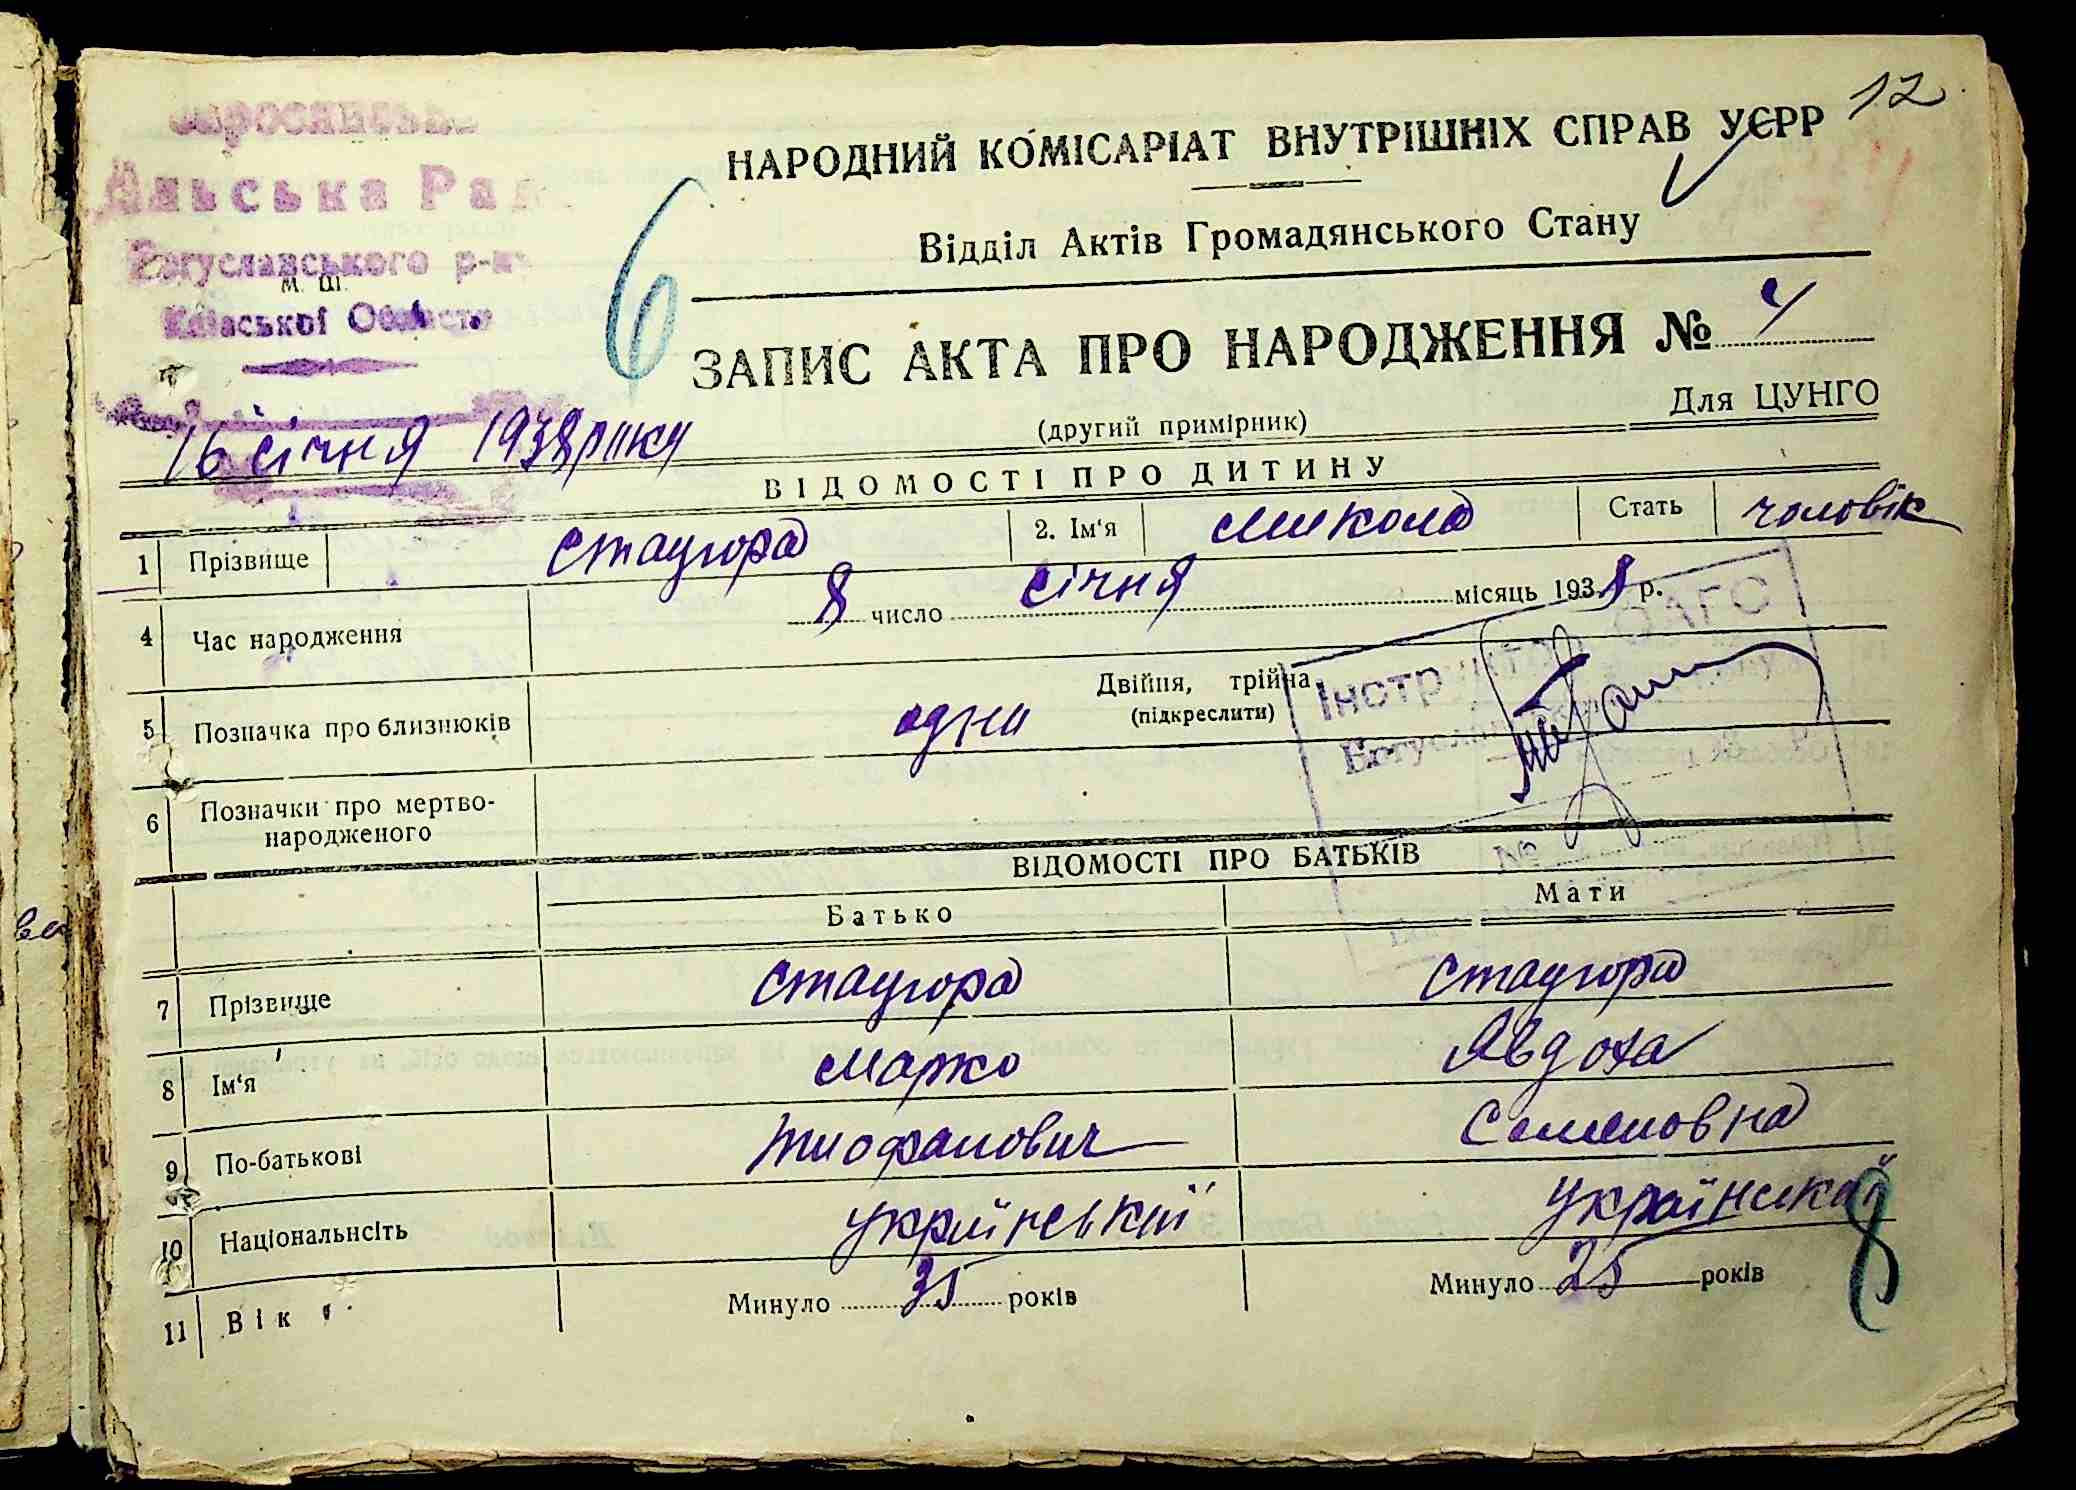 12
НАРОДНИЙ КОМІСАРІАТ ВНУТРІШНІХ СПРАВ УСРР
Відділ Актів Громадянського Стану
Сільська Рада
Богуславського р-ну
М. Ш.
Київської Области
6
ЗАПИС АКТА ПРО НАРОДЖЕННЯ № 4
Для ЦУНГО
(другий примірник)
16 січня 1938 року
ВІДОМОСТІ ПРО ДИТИНУ
1 Прізвище Стаугора 2. Ім‘я Микола Стать чоловік
4 Час народження 8 число січня місяць 1938 р.
5 Позначка про близнюків одна Двійня, трійна
(підкреслити)
Інструктор ОАГС
6 Позначки про мертво-
народженого
№
ВІДОМОСТІ ПРО БАТЬКІВ
Батько Мати
7 Прізвище Стаугора Стаугора
8 Ім‘я Марко Явдоха
9 По-батькові Тиофанович Семеновна
10 Національнсіть української української
8
11 Вік Минуло 35 років Минуло 25 років